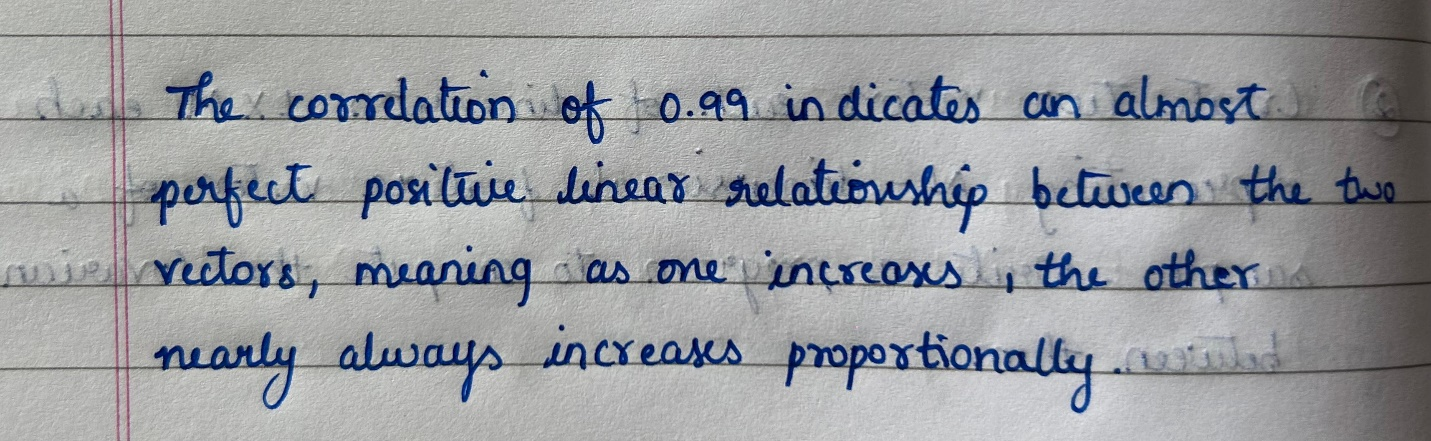 The correlation of 0.99 indicates an almost
perfect positive linear relationship between the two
vectors, meaning as one increases, the other
nearly always increases proportionally.